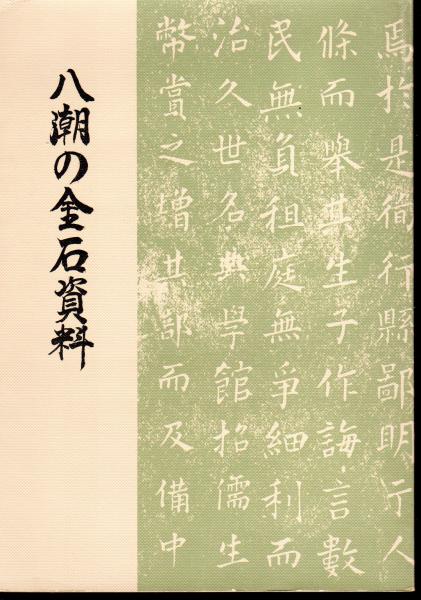 八潮の金石資料
焉於是衛行縣鄙明示人
條而舉其生子作誨言數
民無負租庭無爭細利而
治久世名興學館招儒生
幣賞之增其部而及備中